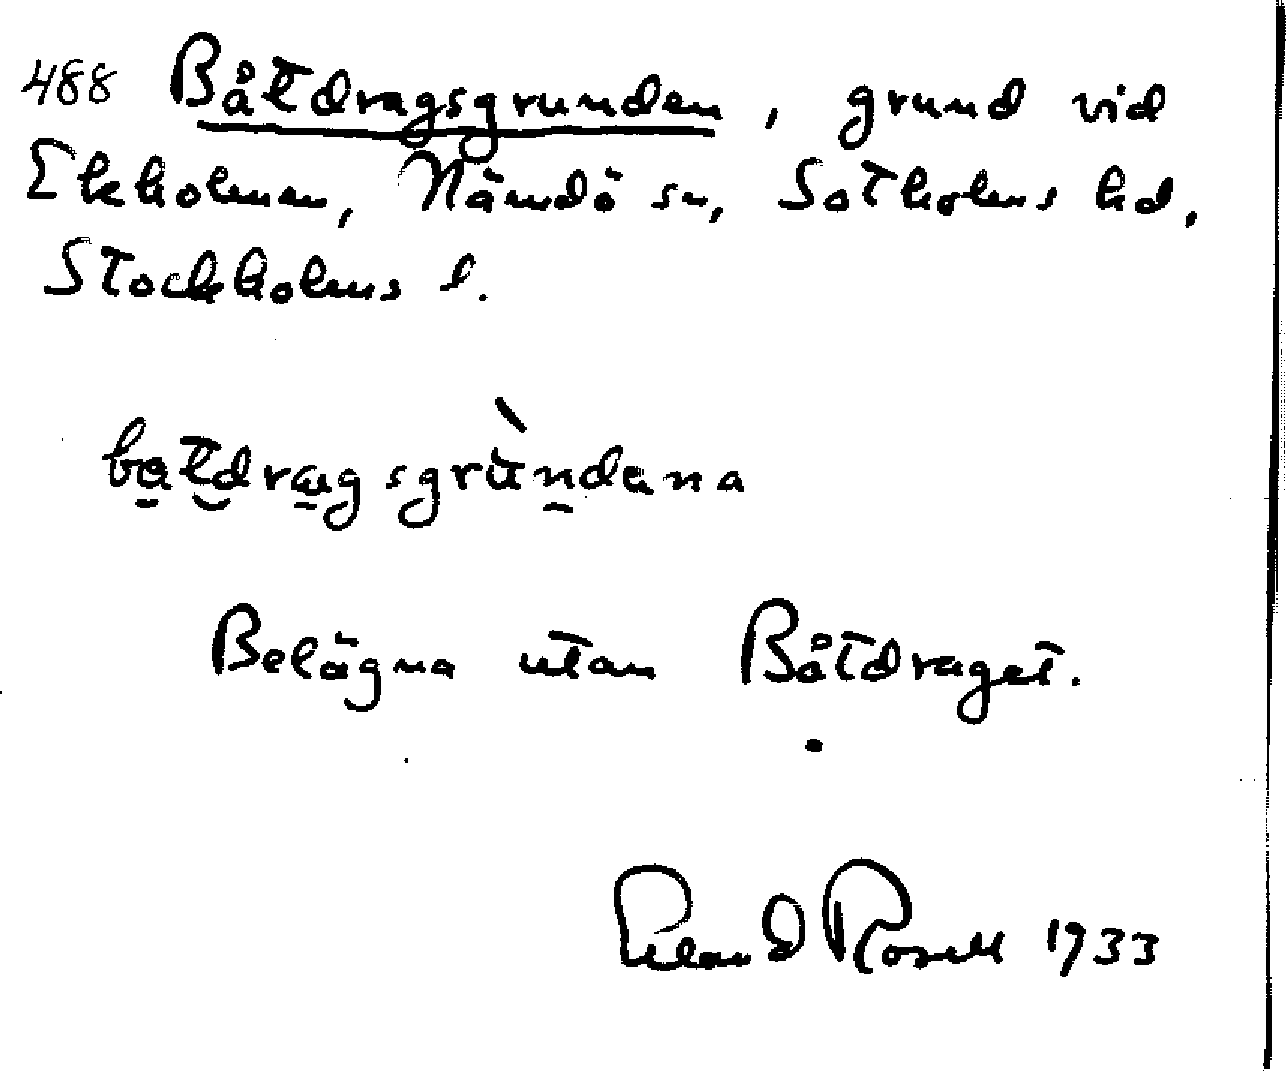 488 Båtdragsgrunden, grund vid
Ekholmen, Nämdö sn, Sotholms hd,
Stockholms l.
batdragsgrùndana
Belägna utan Båtdraget.
Erland Rosell 1933